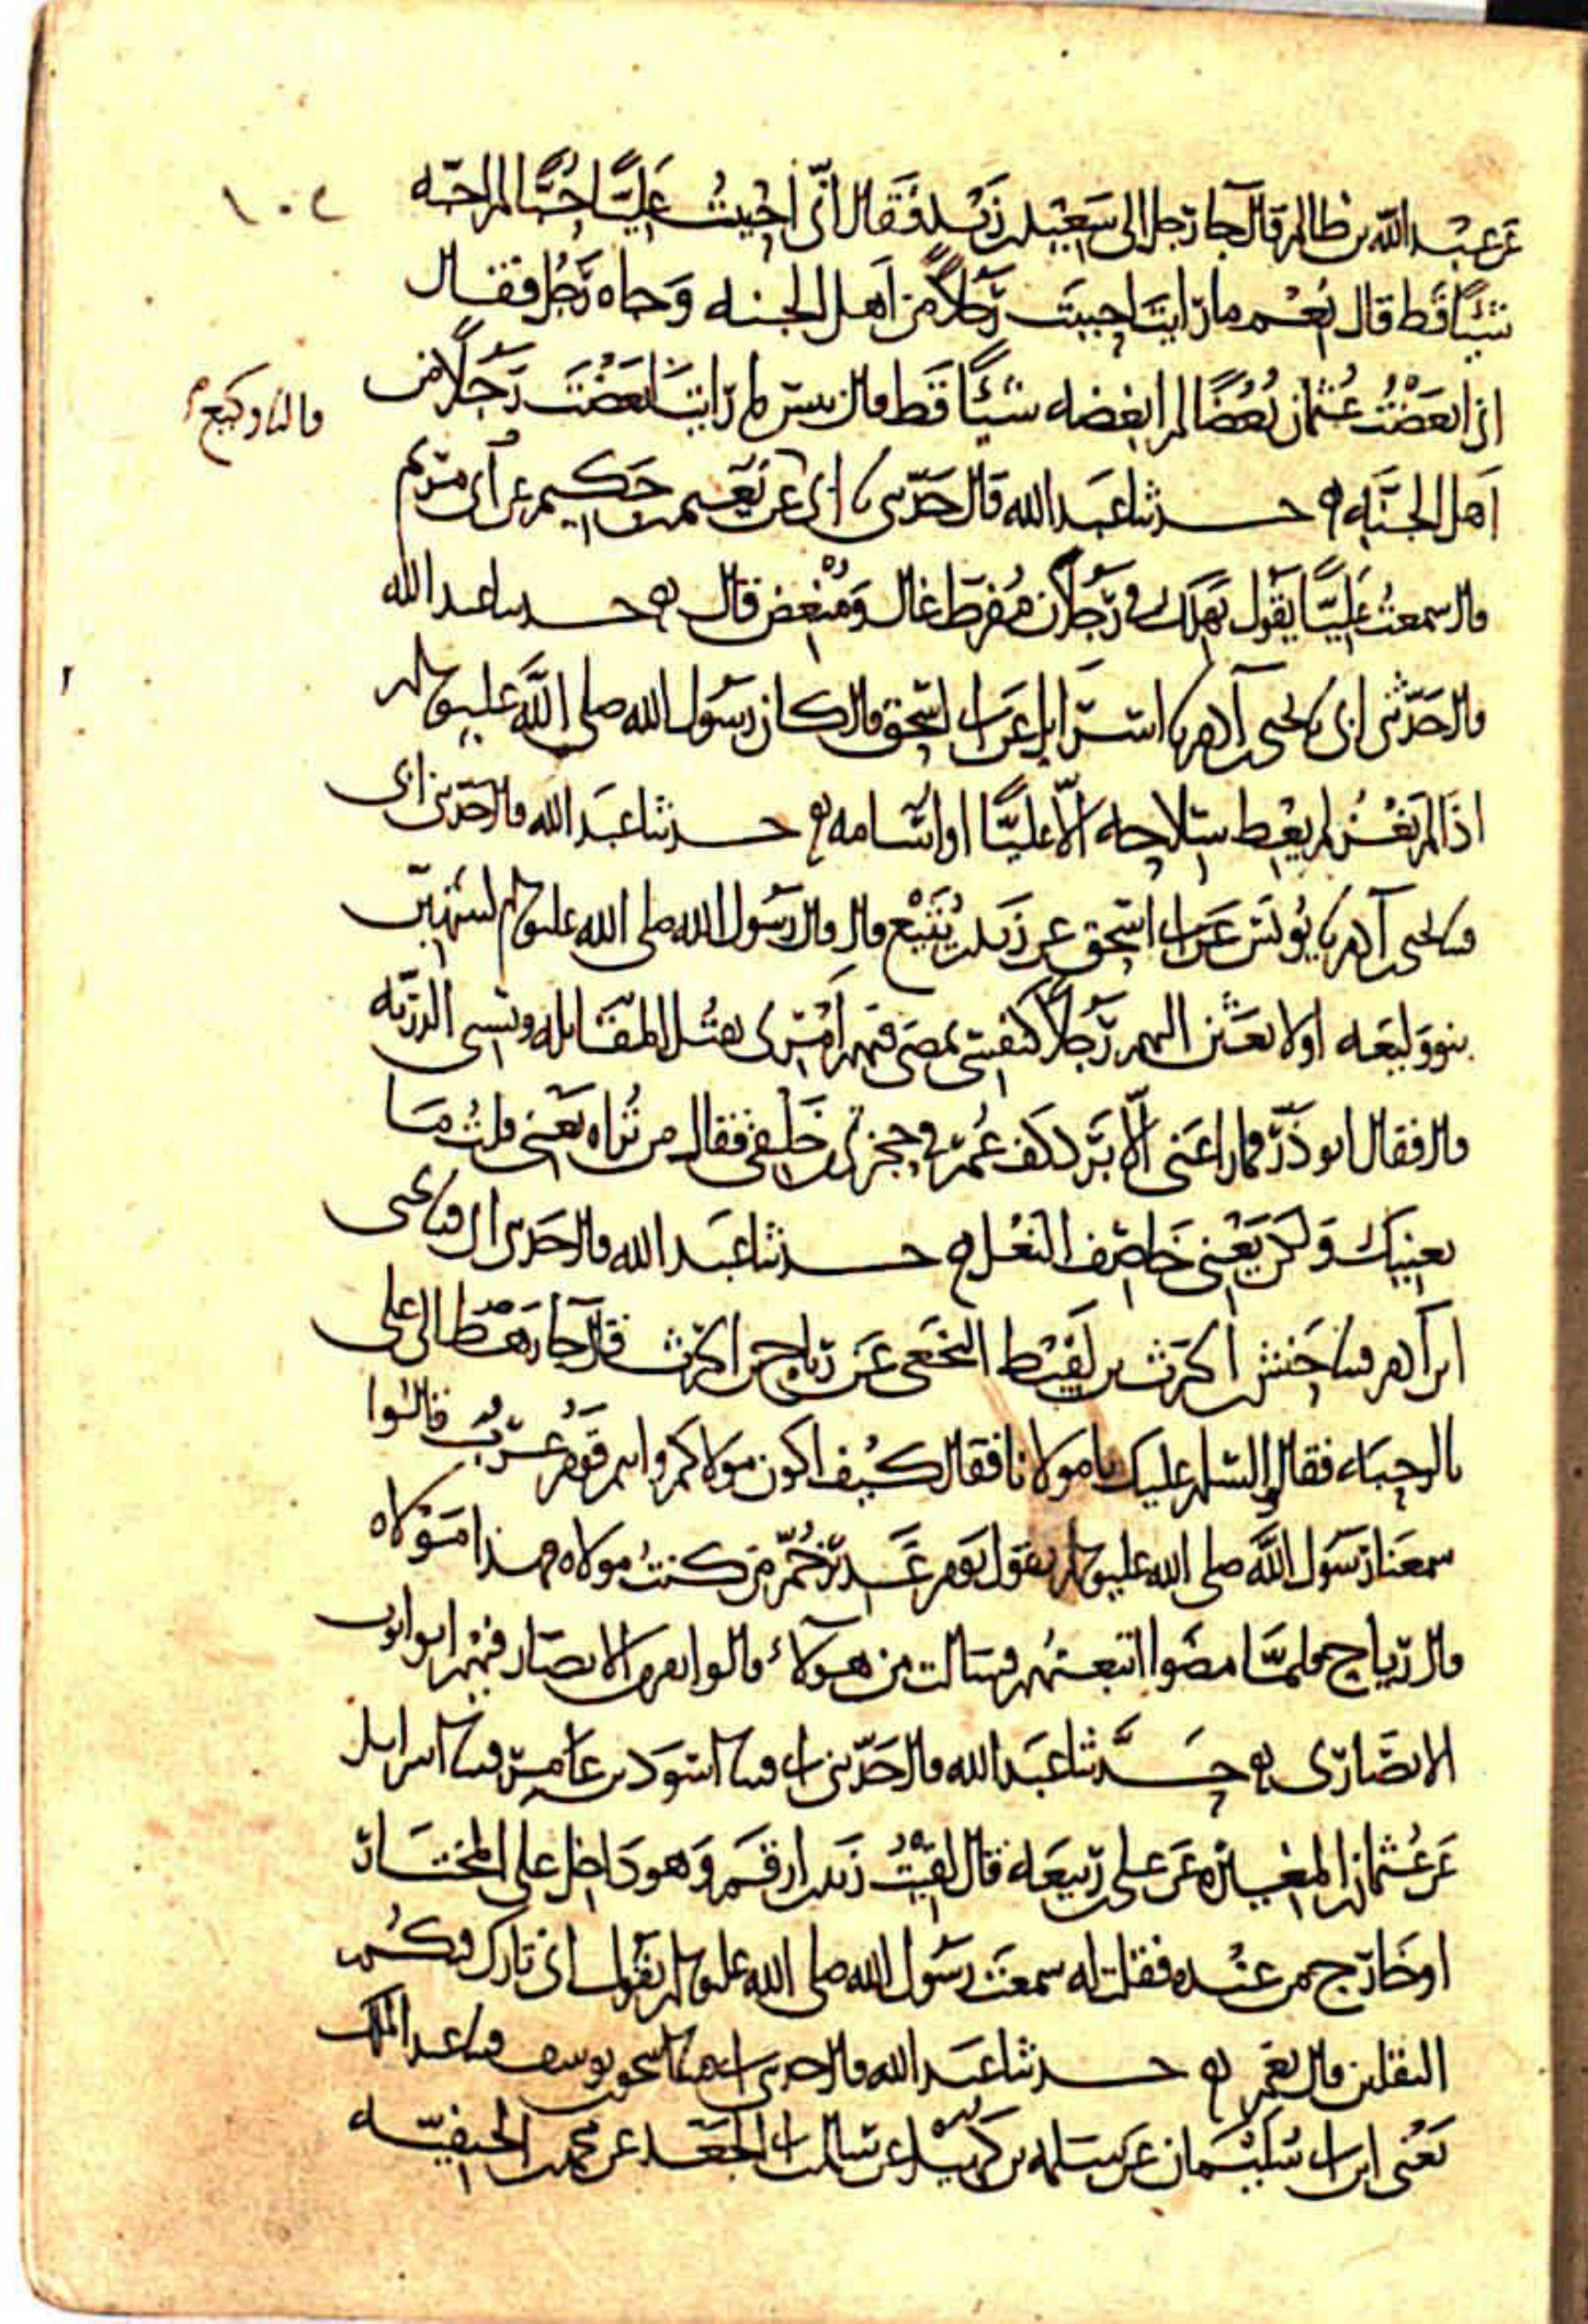 ١٠٢
عن عبد الله بن ظالم قال جا رجل الى سعيد بن زيد فقال اني احببت عليًّا حُبًّا لم احبه
شيئًا قط قال نعم ما رايت احببت رجلاً من اهل الجنه وجاه رجل فقال
اني ابغضت عثمان بغضًا لم ابغضه شيئًا قط قال بئس ما رايت ابغضت رجلًا من
قال نا وكيع
اهل الجنه حدثنا عبد الله قال حدثني ابي عن نعيم بن حكيم عن ابي مريم
قال سمعت عليًّا يقول يهلك في رجلان مفرط غال ومبغض قال حدثنا عبد الله
قال حدثني ابي نا يحيى بن آدم نا اسرائيل عن ابي اسحق قال كان رسول الله صلى الله عليه وسلم
اذا لم يغز لم يعط سلاحه الّا عليًّا او اسامه حدثنا عبد الله قال حدثني ابي
قثنا يحيى بن آدم نا يونس عن ابي اسحق عن زيد بن يثيع قال قال رسول الله صلى الله عليه وسلم لينتهين
بنو وليعه او لابعثن اليهم رجلًا كنفسي يمضي فيهم امري يقتل المقاتله ويسبي الذريه
قال فقال ابو ذر فما راعني الّا برد كف عمر في حجزتي من خلفي فقال من تراه يعني قلت ما
يعنيك ولكن يعني خاصف النعل حدثنا عبد الله قال حدثني ابي قثنا يحيى
ابن آدم قثنا حنش بن الحرث بن لقيط النخعي عن رياح بن الحرث قال جا رهط الى علي
بالرحباء فقالوا السلم عليك يا مولانا فقال كيف اكون مولاكم وانتم قوم عرب قالوا
سمعنا رسول الله صلى الله عليه وسلم يقول يوم غدير خم من كنت مولاه فهذا مولاه
قال رياح فلما مضوا اتبعتهم فسالت من هولآء قالوا نفر من الانصار فيهم ابو ايوب
الانصاري حدثنا عبد الله قال حدثني ابي قثنا اسود بن عامر قثنا اسرايل
عن عثمان بن المغيره عن علي بن ربيعه قال لقيت زيد بن ارقم وهو داخل على المختار
او خارج من عنده فقلت له سمعت رسول الله صلى الله عليه وسلم يقول اني تارك فيكم
الثقلين قال نعم حدثنا عبد الله قال حدثني ابي قثنا اسحق بن يوسف قثنا عبد الملك
يعني ابن ابي سليمان عن سلمه بن كهيل عن سالم بن ابي الجعد عن محمد بن الحنفيه